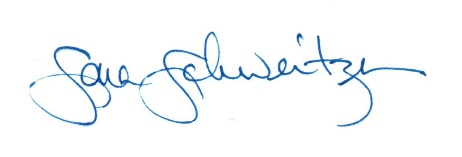 Sara Schweitzer